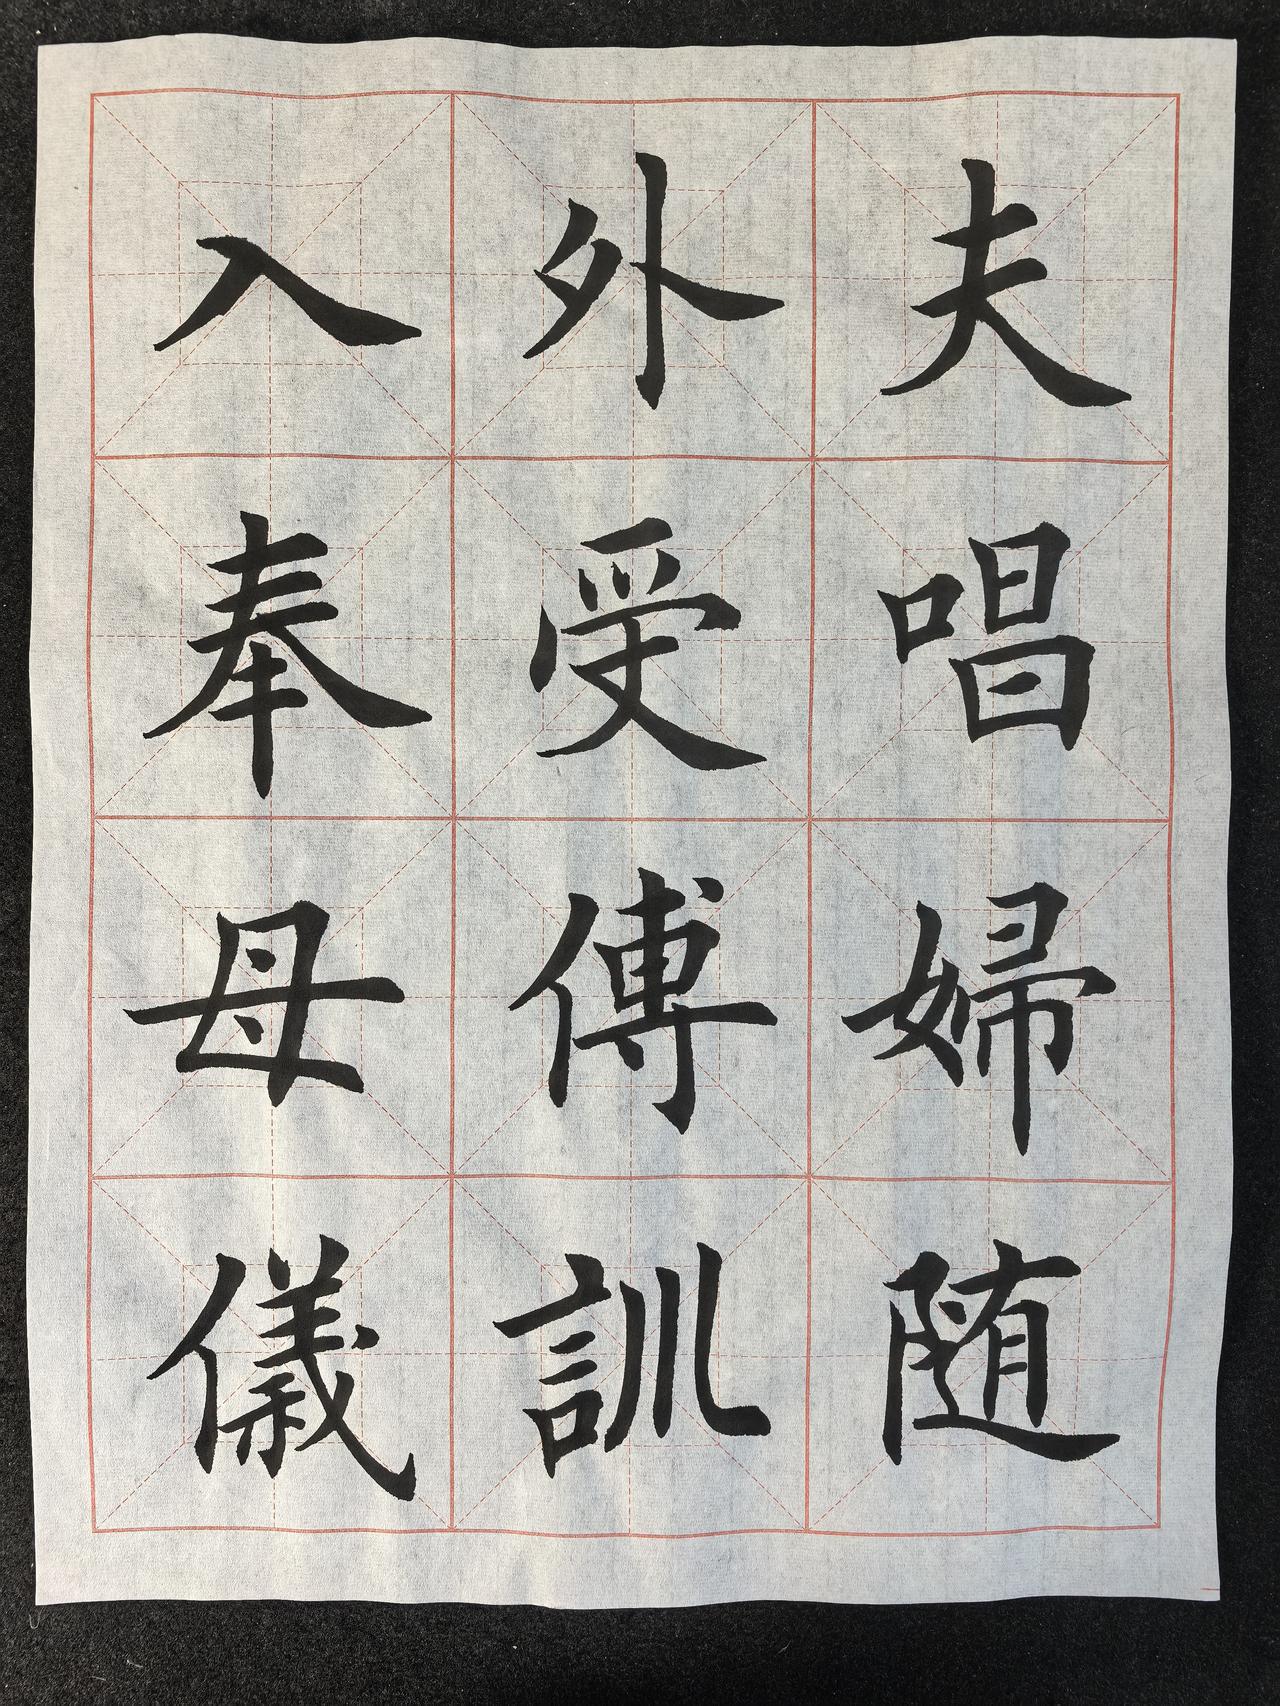 夫唱婦随
外受傅訓
入奉母儀